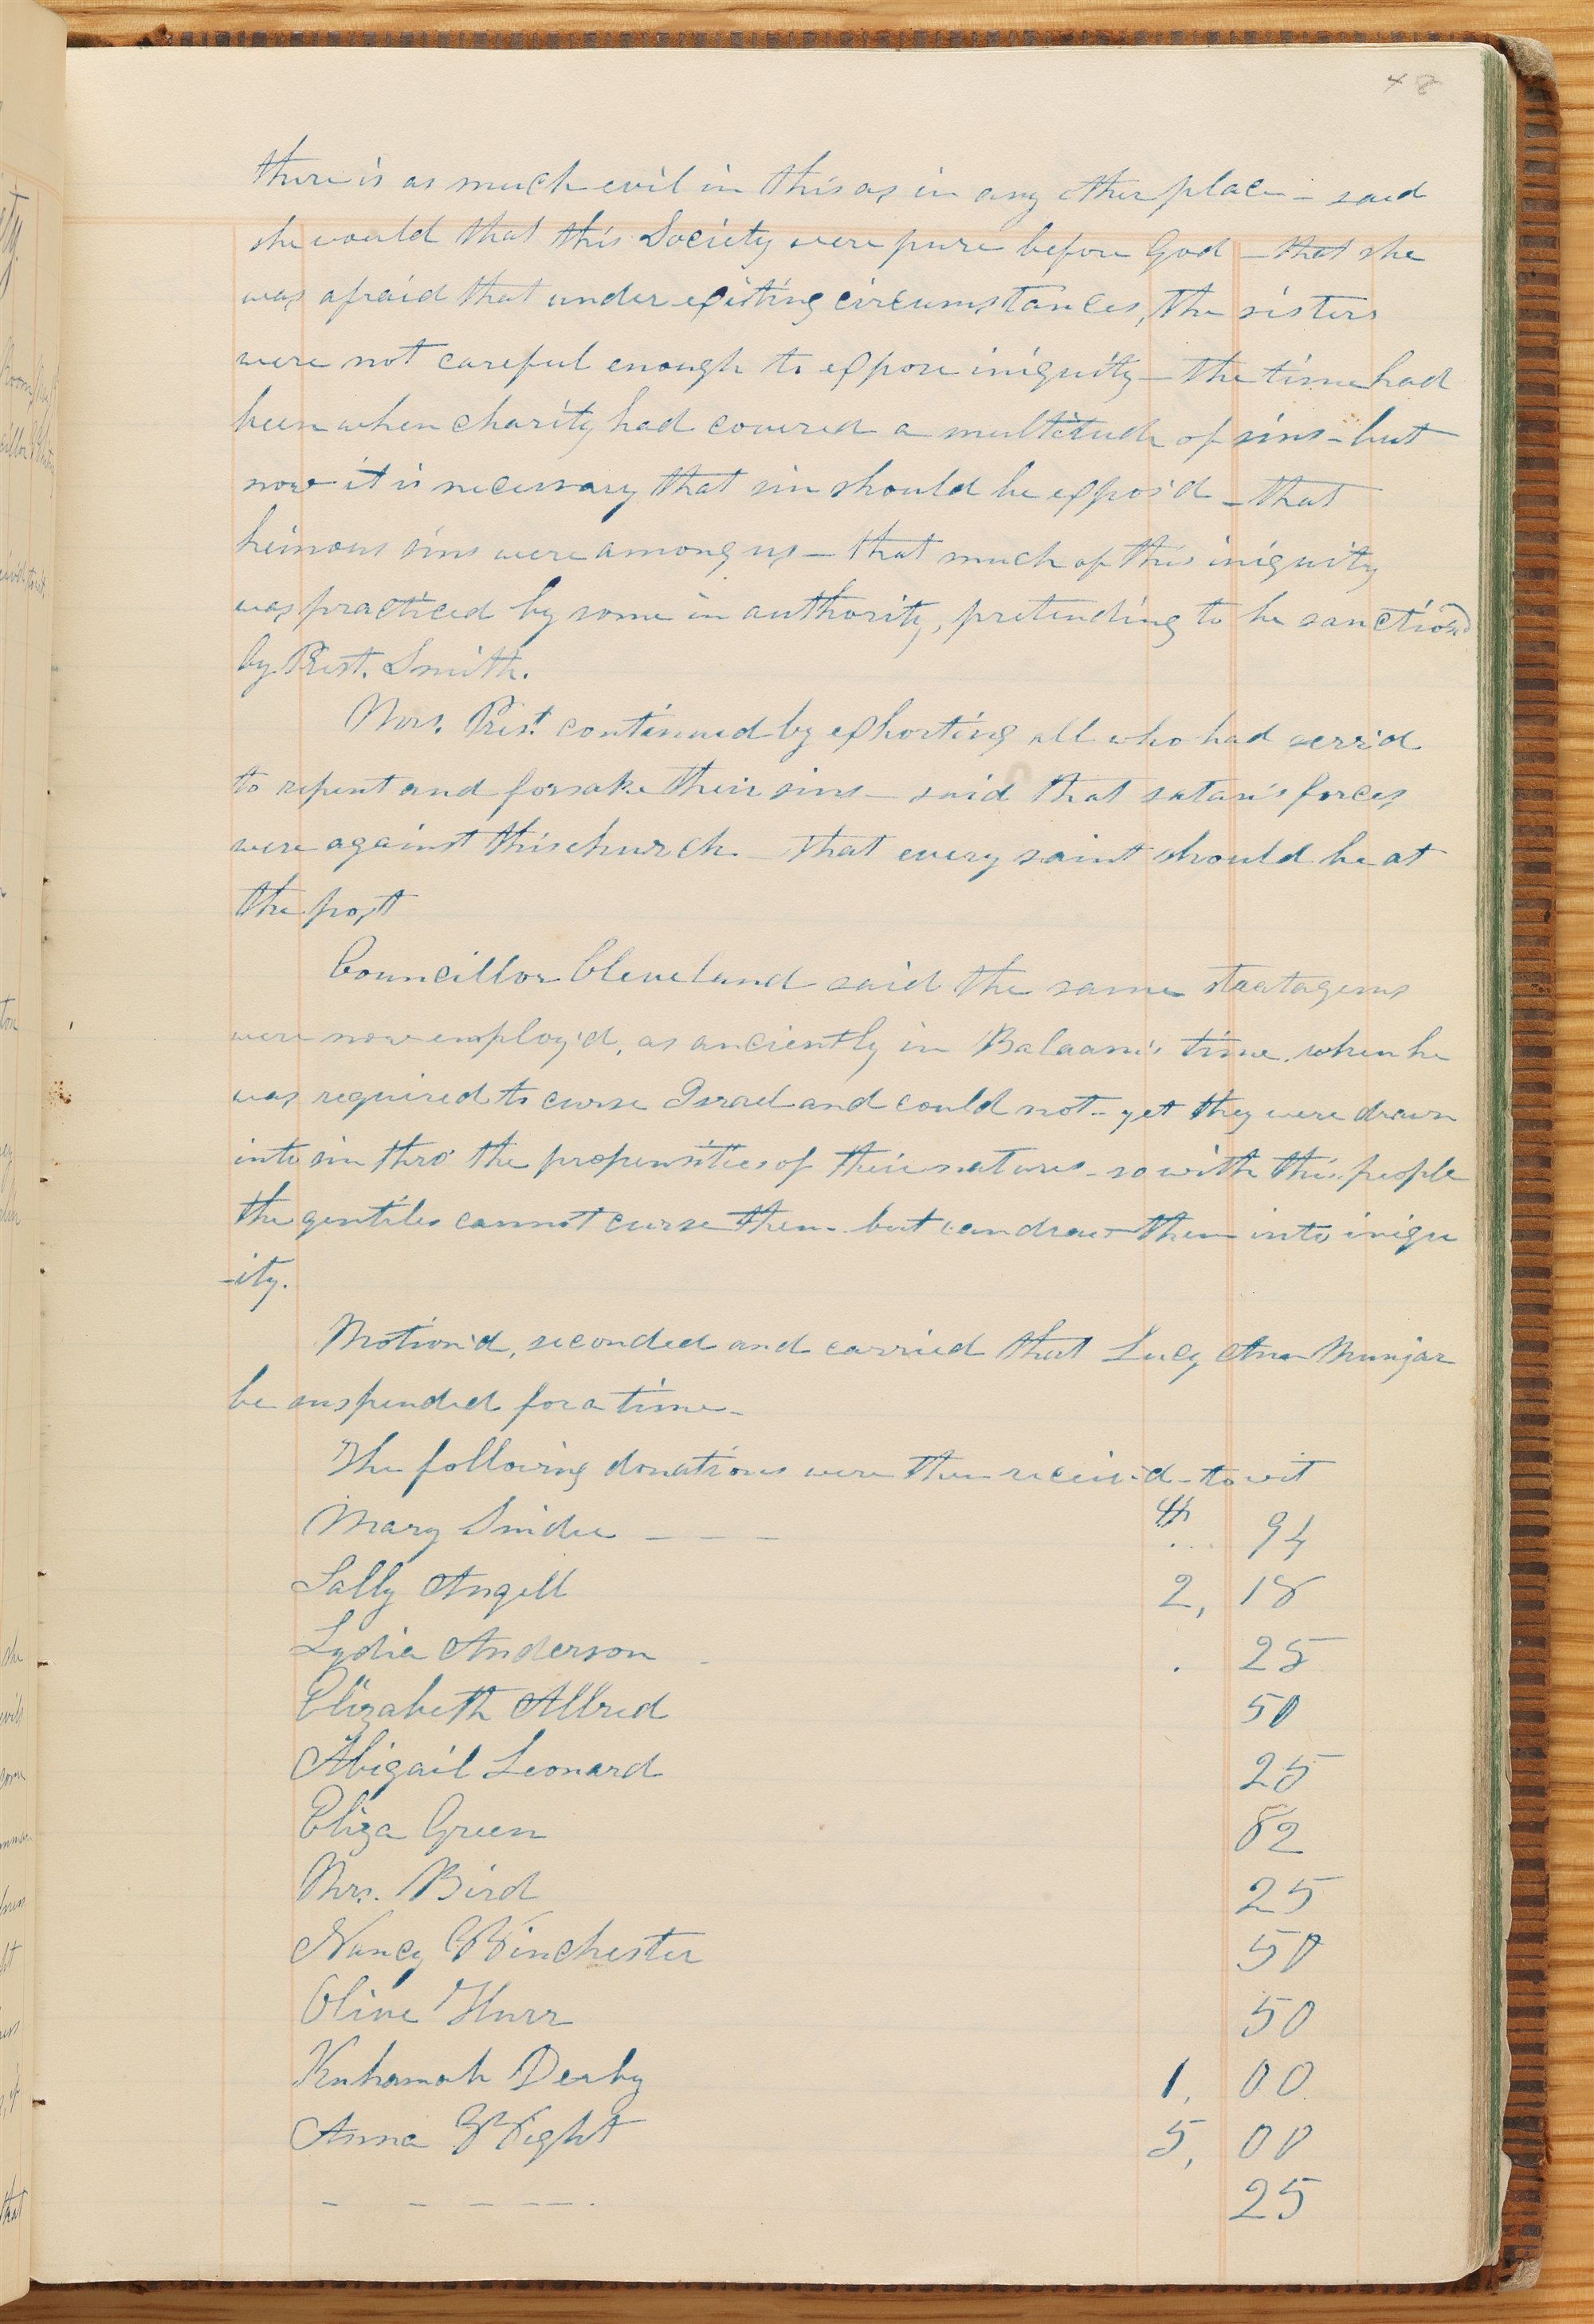 48
there is as much evil in this as in any other place — said
she would that this Society were pure before God — that she
was afraid that under existing circumstances, the sisters
were not careful enough to expose iniquity — the time had
been when charity had covered a multitude of sins — but
now it is necessary that sin should be expos'd — that
heinous sins were among us — that much of this iniquity
was practiced by some in authority, pretending to be sanction'd
by Prest. Smith.
Mrs. Prest. continued by exhorting all who had err'd
to repent and forsake their sins — said that satan's forces
were against this church — that every saint should be at
the post
Councillor Cleveland said the same stratagems
were now employ'd, as anciently in Balaam's time, when he
was required to curse Israel and could not — yet they were drawn
into sin thro' the propensities of their natures — so with this people
the gentiles cannot curse them — but can draw them into iniqu
-ity.
Motion'd, seconded and carried that Lucy Ann Munjar
be suspended for a time —
The following donations were then receiv'd — to wit
Mary Snider — — — $ 94
Sally Angell 2, 18
Lydia Anderson - . 25
Elizabeth Allred 50
Abigail Leonard 25
Eliza Green 82
Mrs. Bird 25
Nancy Winchester 50
Olive 50
Derby 1, 00
Anna Wight 5, 00
— — — — 25